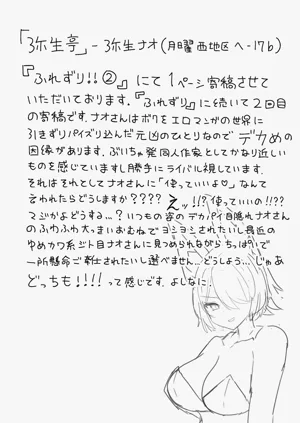 「弥生亭」-弥生ナオ(月曜西地区へ-17b)
『ふれずり!!②』にて1ページ寄稿させて
いただいております。『ふれずり』に続いて2回目
の寄稿です。ナオさんはボクをエロマンガの世界に
引きずりパイズリ込んだ元凶のひとりなのでデカめの
因縁があります。ぶいちゅ発同人作家としてかなり近しい
ものを感じていますし勝手にライバル視しています。
それはそれとしてナオさんに「使っていいよ♡」なんて
言われたらどうしますか???? えッ!!?使っていいの!!??
マジかよどうする…?いつもの姿のデカパイ目隠れナオさん
のふわふわ大っきいおむねでヨシヨシされたいし最近の
ゆめカワ系ジト目ナオさんに見つめられながらちっぱいで
一所懸命ご奉仕されたいし選べません…どうしよう…じゃあ
どっちも!!!!って感じです。よしなに。